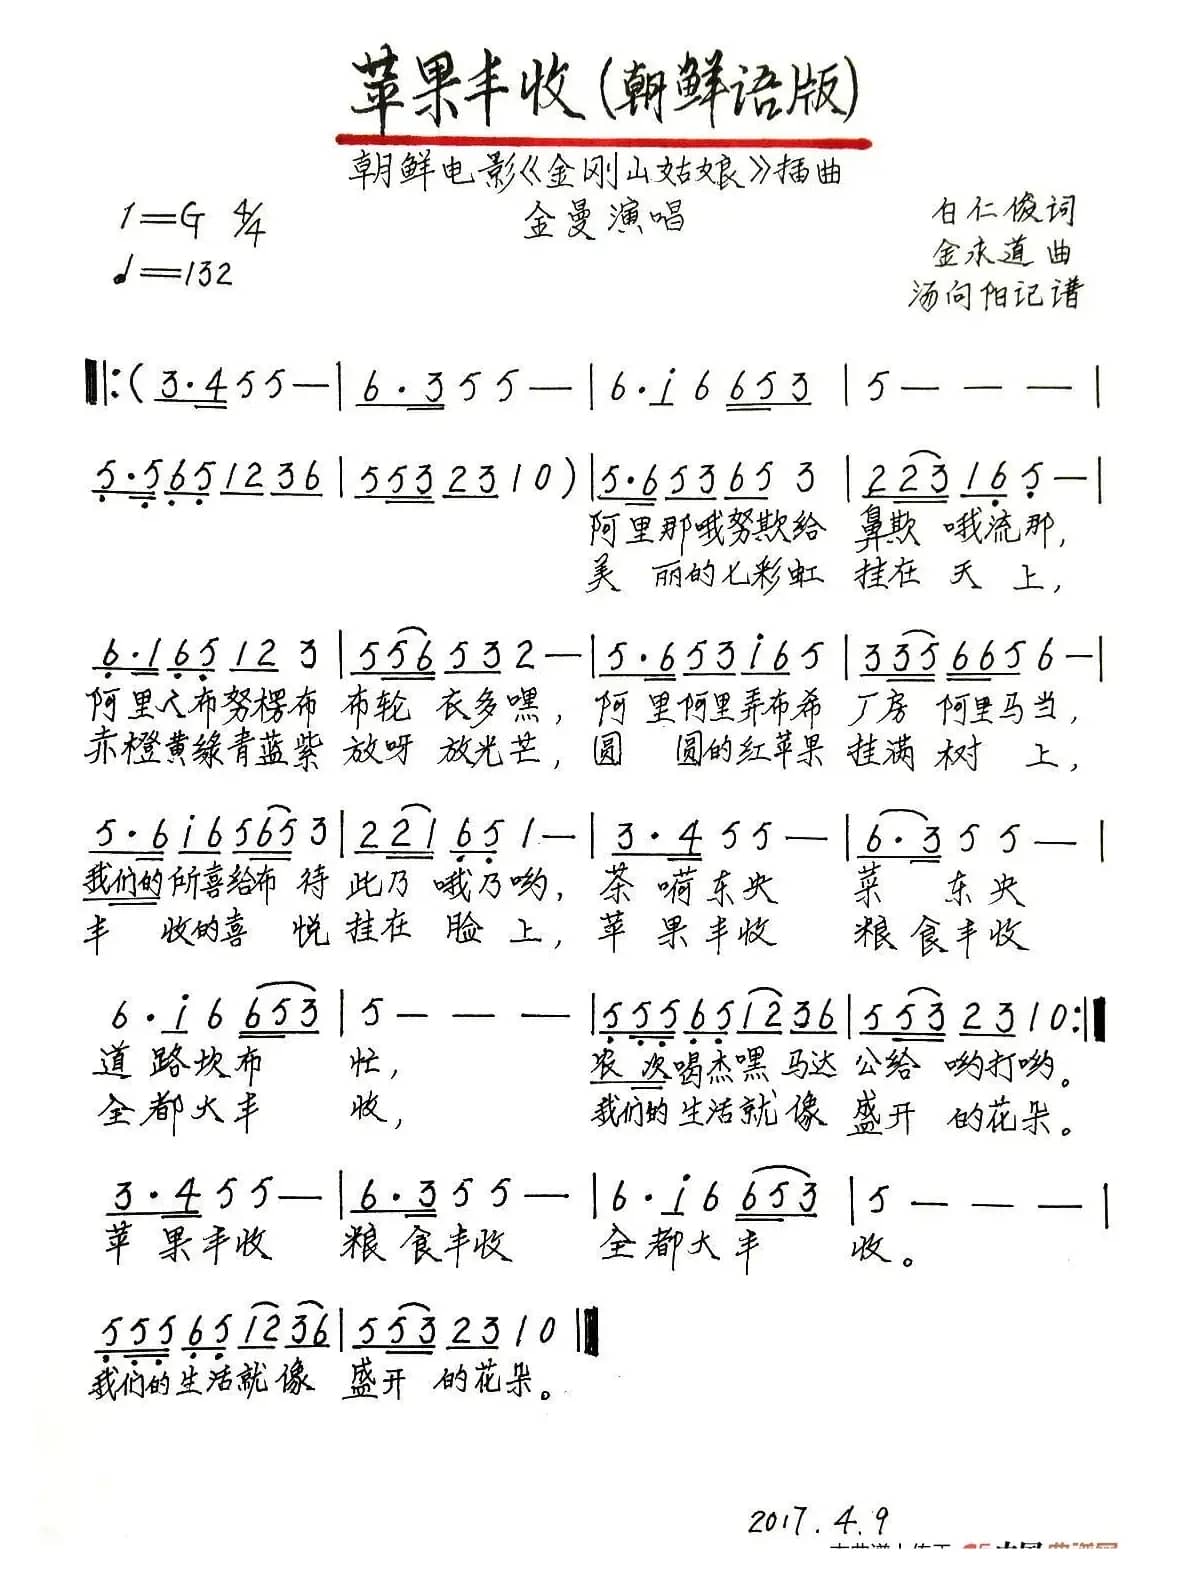 苹果丰收(朝鲜语版)
朝鲜电影《金刚山姑娘》插曲
1=G 4/4 金曼演唱 白仁俊词
金永道曲
♩=132
汤向阳记谱
‖:(3·4 5 5 —|6·3 5 5 —|6·i 6 653|5 — — —|
5·5 65 12 36|553 23 1 0)|5·6 53 65 3|223 16 5 —|
阿里那哦努欺给 鼻欺 哦流那,
美 丽的七彩虹 挂在 天 上,
6·1 65 12 3|556 53 2 —|5·6 53 i6 5|335 665 6 —|
阿里人布努楞布 布轮 衣多嘿, 阿 里阿里弄布希 厂房 阿里马当,
赤橙黄绿青蓝紫 放呀 放光芒, 圆 圆的红苹果 挂满 树 上,
5·6 i6 565 3|221 65 1 —|3·4 5 5 —|6·3 5 5 —|
我们的所喜给布 待 此乃 哦乃哟, 茶 嗬东央 菜 东央
丰 收的喜 悦 挂在 脸 上, 苹 果丰收 粮食丰收
6·i 6 653|5 — — —|555 65 12 36|553 23 1 0:‖
道 路坎布 忙, 农 次喝杰嘿 马达 公给 哟打哟。
全都大丰 收, 我们的生活就像 盛开 的花朵。
3·4 5 5 —|6·3 5 5 —|6·i 6 653|5 — — —|
苹 果丰收 粮食丰收 全都大丰 收。
555 65 12 36|553 23 1 0‖
我们的生活就像 盛开 的花朵。
2017.4.9